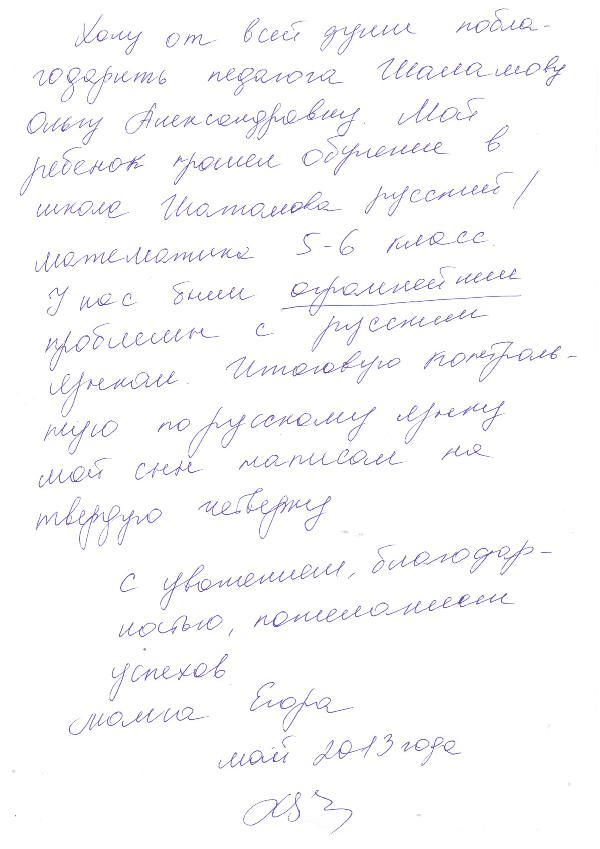 Хочу от всей души побла-
годарить педагога Шаламову
Ольгу Александровну. Мой
ребенок прошел обучение в
школе Шаталова русский/
математика 5-6 класс.
У нас были огромнейшие
проблемы с русским
языком. Итоговую контроль-
ную по русскому языку
мой сын написал на
твердую четверку
С уважением, благодар-
ностью, пожеланием
успехов
мама Егора
май 2013 года